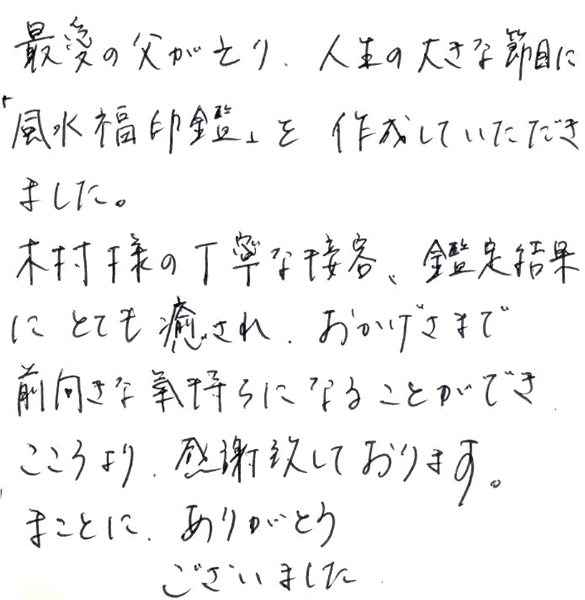 最愛の父が去り、人生の大きな節目に
「風水福印鑑」を 作成していただき
ました。
木村様の丁寧な接客、鑑定結果
にとても癒され、おかげさまで
前向きな氣持ちになることができ、
こころより、感謝致しております。
まことに、ありがとう
ございました。